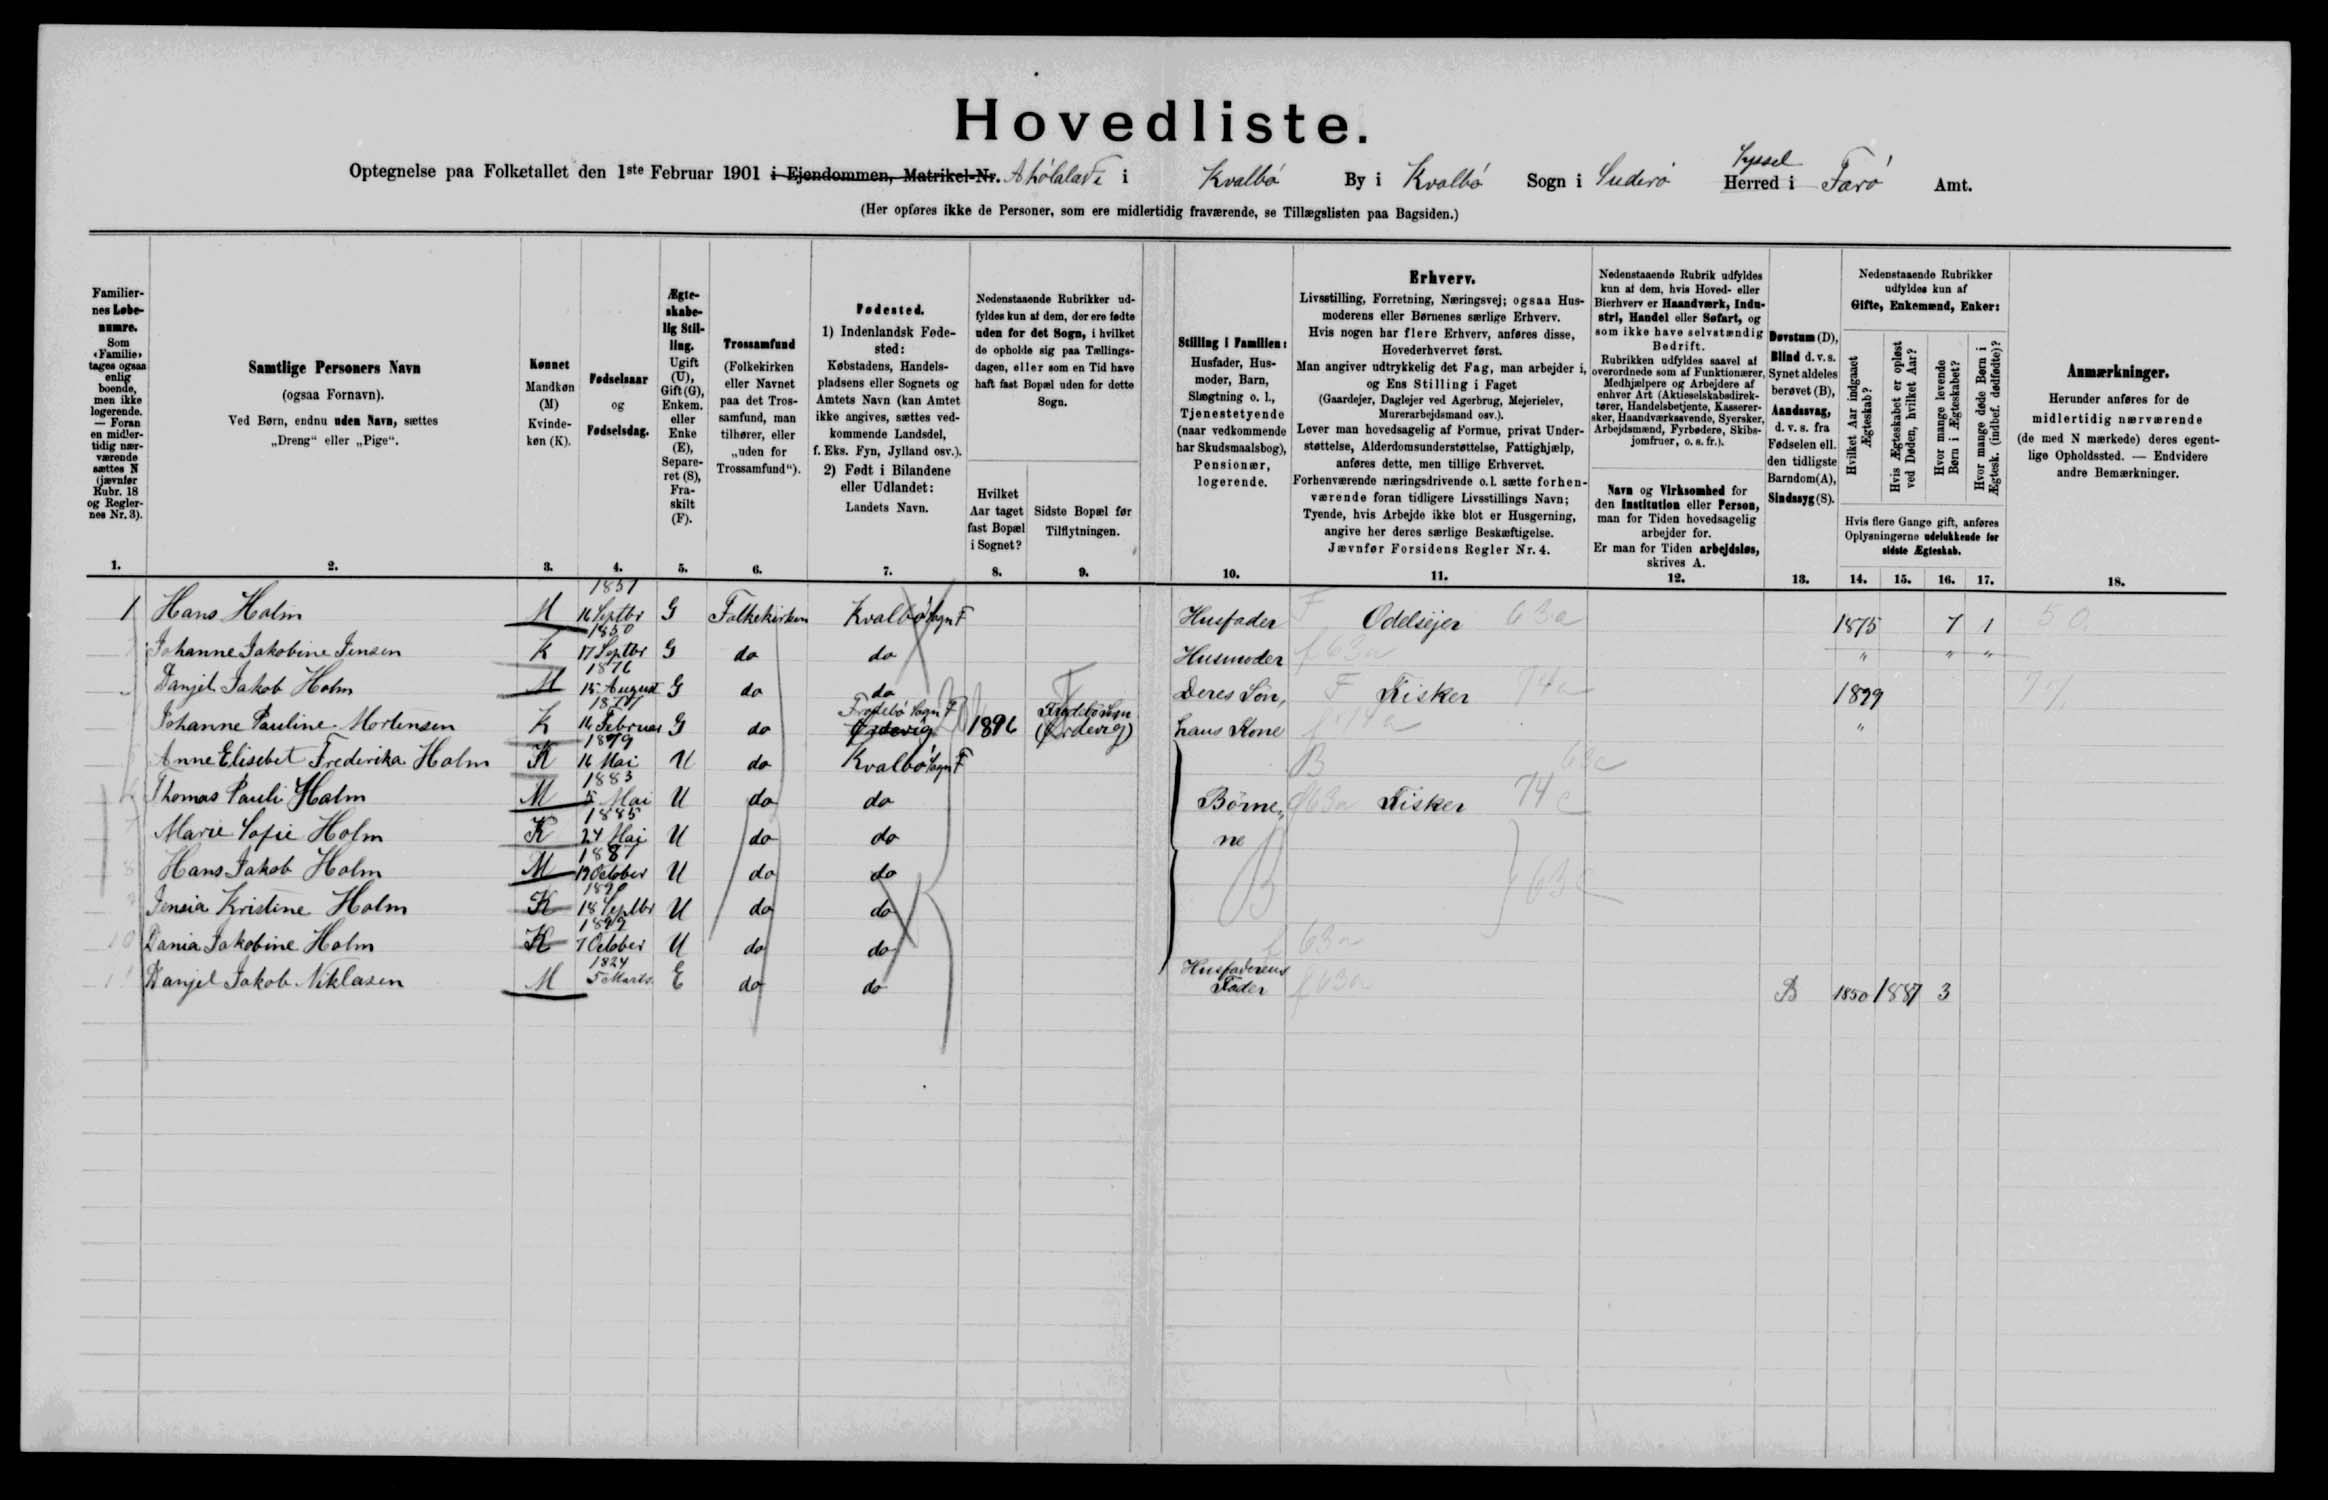 Hovedliste.
Optegnelse paa Folketallet den 1ste Februar 1901 i Ejendommen, Matrikel-Nr. i Kvalbø By i Kvalbø Sogn i Suderø Syssel Herred i Farø Amt.
(Her opføres ikke de Personer, som ere midlertidig fraværende, se Tillægslisten paa Bagsiden.)
Familiernes Løbenumre. Som «Familie» tages ogsaa enlig boende, men ikke logerende. — Foran en midlertidig nærværende sættes N (jævnfør Rubr. 18 og Reglernes Nr. 3).
Samtlige Personers Navn (ogsaa Fornavn). Ved Børn, endnu uden Navn, sættes „Dreng" eller „Pige".
Kønnet Mandkøn (M) Kvindekøn (K).
Fødselsaar og Fødselsdag.
Ægteskabelig Stilling. Ugift (U), Gift (G), Enkem. eller Enke (E), Separeret (S), Fraskilt (F).
Trossamfund (Folkekirken eller Navnet paa det Trossamfund, man tilhører, eller „uden for Trossamfund").
Fødested. 1) Indenlandsk Fødested: Købstadens, Handelspladsens eller Sognets og Amtets Navn (kan Amtet ikke angives, sættes vedkommende Landsdel, f. Eks. Fyn, Jylland osv.). 2) Født i Bilandene eller Udlandet: Landets Navn.
Nedenstaaende Rubrikker udfyldes kun af dem, der ere fødte uden for det Sogn, i hvilket de opholde sig paa Tællingsdagen, eller som en Tid have haft fast Bopæl uden for dette Sogn.
Hvilket Aar taget fast Bopæl i Sognet?
Sidste Bopæl før Tilflytningen.
Stilling i Familien: Husfader, Husmoder, Barn, Slægtning o. l., Tjenestetyende (naar vedkommende har Skudsmaalsbog), Pensionær, logerende.
Erhverv.
Livsstilling, Forretning, Næringsvej; ogsaa Husmoderens eller Børnenes særlige Erhverv.
Hvis nogen har flere Erhverv, anføres disse, Hovederhvervet først.
Man angiver udtrykkelig det Fag, man arbejder i, og Ens Stilling i Faget
(Gaardejer, Daglejer ved Agerbrug, Mejerielev, Murerarbejdsmand osv.).
Lever man hovedsagelig af Formue, privat Understøttelse, Alderdomsunderstøttelse, Fattighjælp, anføres dette, men tillige Erhvervet.
Forhenværende næringsdrivende o.l. sætte forhenværende foran tidligere Livsstillings Navn;
Tyende, hvis Arbejde ikke blot er Husgerning, angive her deres særlige Beskæftigelse.
Jævnfør Forsidens Regler Nr. 4.
Nedenstaaende Rubrik udfyldes kun af dem, hvis Hoved- eller Bierhverv er Haandværk, Industri, Handel eller Søfart, og som ikke have selvstændig Bedrift.
Rubrikken udfyldes saavel af overordnede som af Funktionærer, Medhjælpere og Arbejdere af enhver Art (Aktieselskabsdirektører, Handelsbetjente, Kasserersker, Haandværkssvende, Syersker, Arbejdsmænd, Fyrbødere, Skibsjomfruer, o. s. fr.).
Navn og Virksomhed for den Institution eller Person, man for Tiden hovedsagelig arbejder for.
Er man for Tiden arbejdsløs, skrives A.
Døvstum (D), Blind d. v. s. Synet aldeles berøvet (B), Aandssvag, d. v. s. fra Fødselen ell. den tidligste Barndom (A), Sindssyg (S).
Nedenstaaende Rubrikker udfyldes kun af Gifte, Enkemænd, Enker:
Hvilket Aar indgaaet Ægteskab?
Hvis Ægteskabet er opløst ved Døden, hvilket Aar?
Hvor mange levende Børn i Ægteskabet?
Hvor mange døde Børn i Ægtesk. (indbef. dødfødte)?
Hvis flere Gange gift, anføres Oplysningerne udelukkende for sidste Ægteskab.
Anmærkninger. Herunder anføres for de midlertidig nærværende (de med N mærkede) deres egentlige Opholdssted. — Endvidere andre Bemærkninger.
1. 2. 3. 4. 5. 6. 7. 8. 9. 10. 11. 12. 13. 14. 15. 16. 17. 18.
1 Hans Holm M 1851 16 Septbr G Folkekirken Kvalbø Sogn F Husfader F Odelsejer 63a 1875 7 1 50.
Johanne Jakobine Jensen K 1850 17 Septbr G do do Husmoder f 63a " " "
Danjel Jakob Holm M 1876 15 August G do do Deres Søn, F Fisker 74a 1899
Johanne Pauline Mortensen K 16 Februar G do Frodebø Sogn F Ørdevig 1896 Frodebø Sogn (Ørdevig) hans Kone f 74a "
5 Anne Elisebet Frederika Holm K 1879 16 Mai U do Kvalbø Sogn F B 63c
6 Thomas Pauli Holm M 1883 5 Mai U do do Børne, f 63a Fisker 74 c
7 Marie Sofie Holm K 1885 24 Mai U do do ne
8 Hans Jakob Holm M 1887 19 October U do do B 63c
9 Jensia Kristine Holm K 1890 18 Septbr U do do
10 Dania Jakobine Holm K 1892 7 October U do do f 63a
11 Danjel Jakob Niklasen M 1824 5 Marts. E do do Husfaderens Fader f 63a B 1850 1887 3